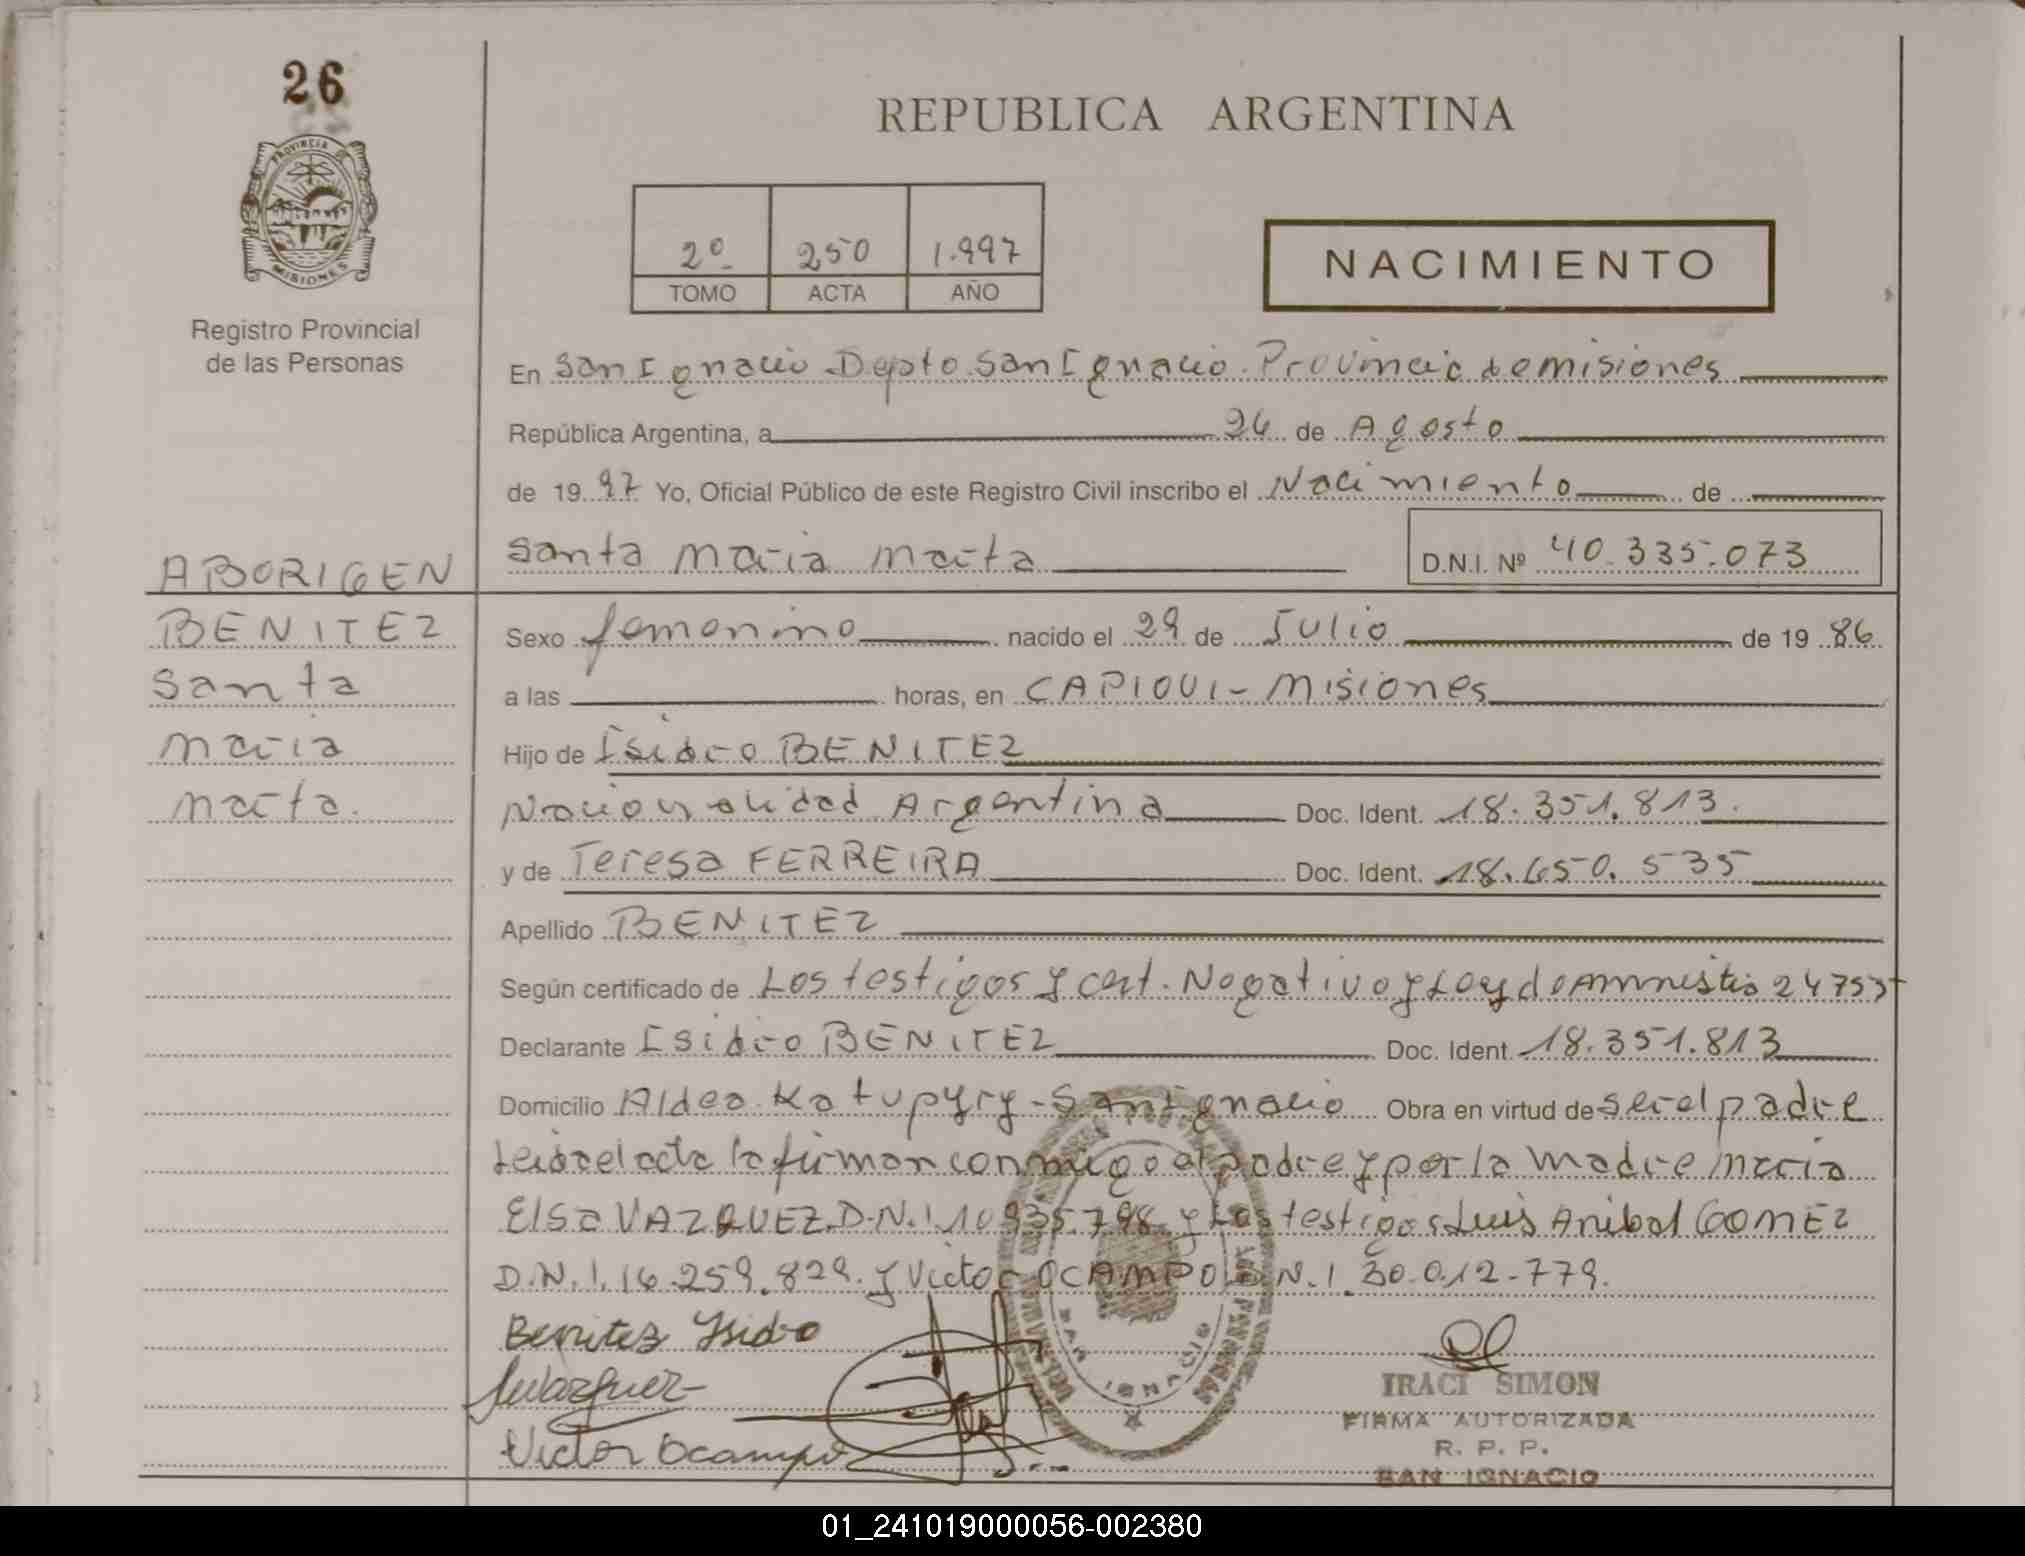 26
PROVINCIA DE
MISIONES
Registro Provincial
de las Personas
REPUBLICA ARGENTINA
2º 250 1.997
TOMO ACTA AÑO
NACIMIENTO
En San Ignacio Depto San Ignacio. Provincia de misiones
República Argentina, a 26 de Agosto
de 19 97 Yo, Oficial Público de este Registro Civil inscribo el Nacimiento de
Santa maria marta D.N.I. Nº 40.335.073
ABORIGEN
BENITEZ
Santa
maria
marta.
Sexo femenino nacido el 29 de Julio de 19 86
a las horas, en CAPIOVI - Misiones
Hijo de Isidro BENITEZ
Nacionalidad Argentina Doc. Ident. 18.351.813.
y de Teresa FERREIRA Doc. Ident. 18.650.535
Apellido BENITEZ
Según certificado de Los testigos y cert. Negativo y Ley de Amnistia 24755
Declarante Isidro BENITEZ Doc. Ident. 18.351.813
Domicilio Aldea Katupyry - San Ignacio Obra en virtud de ser el padre
Leida el acta la firman conmigo el padre y por la madre maria
Elsa VAZQUEZ D.N.I. 10.935.798 y Los testigos Luis Anibal GOMEZ
D.N.I. 16.259.829. y Victor OCAMPO D.N.I. 30.012.779.
Benitez Isidro
Victor Ocampo
SAN IGNACIO
IRACI SIMON
FIRMA AUTORIZADA
R. P. P.
SAN IGNACIO
01_241019000056-002380